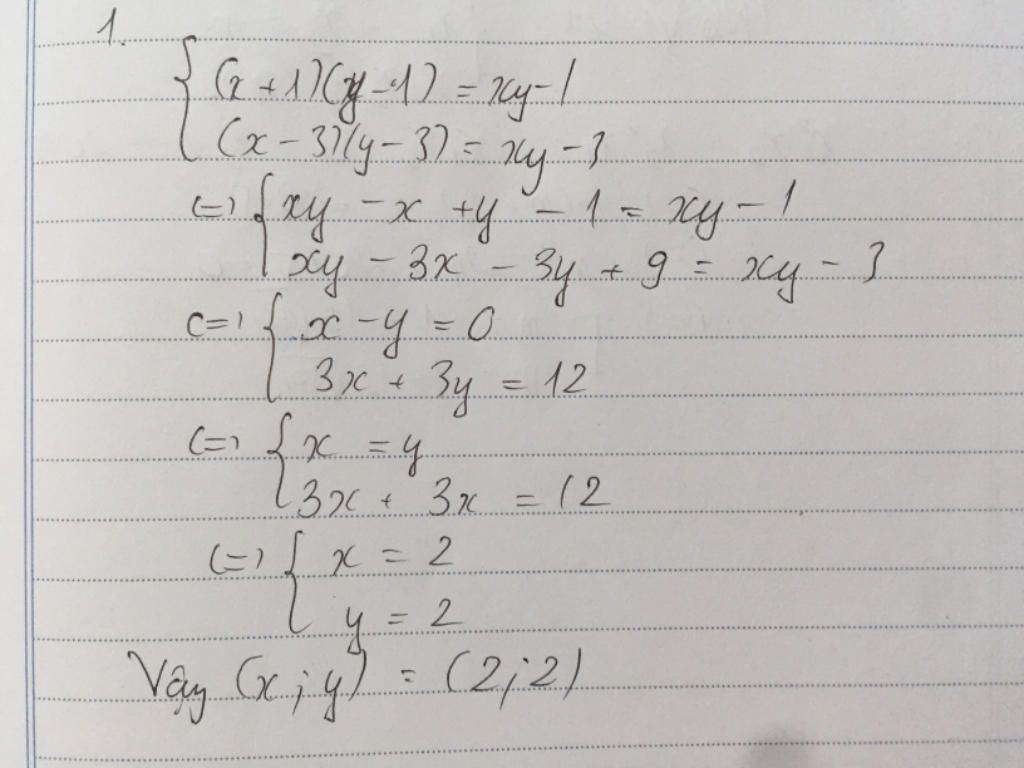 1.
(x + 1)(y - 1) = xy - 1
(x - 3)(y - 3) = xy - 3
(=) xy - x + y - 1 = xy - 1
xy - 3x - 3y + 9 = xy - 3
(=) x - y = 0
3x + 3y = 12
(=) x = y
3x + 3x = 12
(=) x = 2
y = 2
Vậy (x ; y) = (2 ; 2)